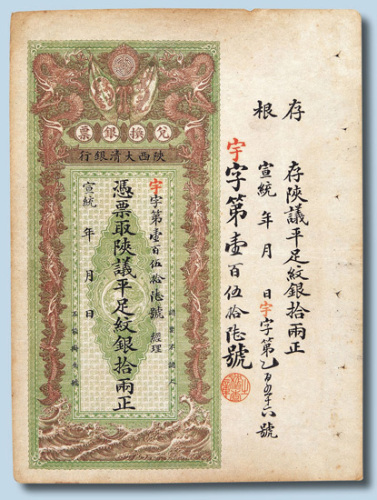 存根
存陝議平足紋銀拾兩正
宣統 年 月 日 宇字第乙百五十六號
宇字第壹百伍拾陸號
兌換銀票
陝西大清銀行
宇字第壹百伍拾陸號 經理
憑票取陝議平足紋銀拾兩正
宣統 年 月 日